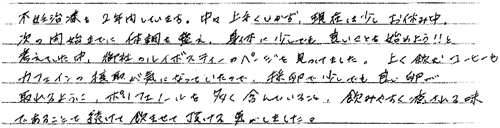 不妊治療を2年内しています。中々上手くいかず、現在は少しお休み中。
次の開始までに体調を整え、身体に少しでも良いことを始めよう!!と
考えていた中、御社のルイボスティーのページを見つけました。よく飲むコーヒーも
カフェインの摂取が気になっていたので、採卵で少しでも良い卵が
取れるように、ポリフェノールを多く含んでいること、飲みやすく癒される味
であることで続けて飲ませて頂ける気がしました。